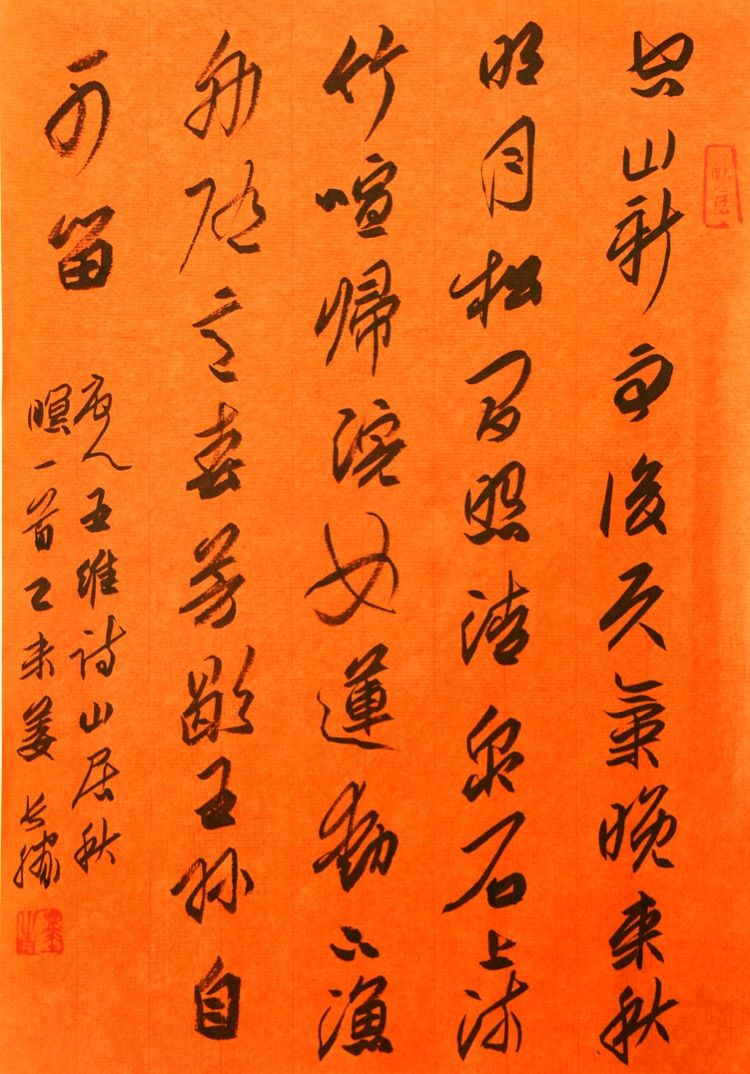 空山新雨後天氣晚來秋
明月松間照清泉石上流
竹喧歸浣女蓮動下漁
舟隨意春芳歇王孫自
可留
唐人王維詩山居秋
暝一首乙未姜長勝